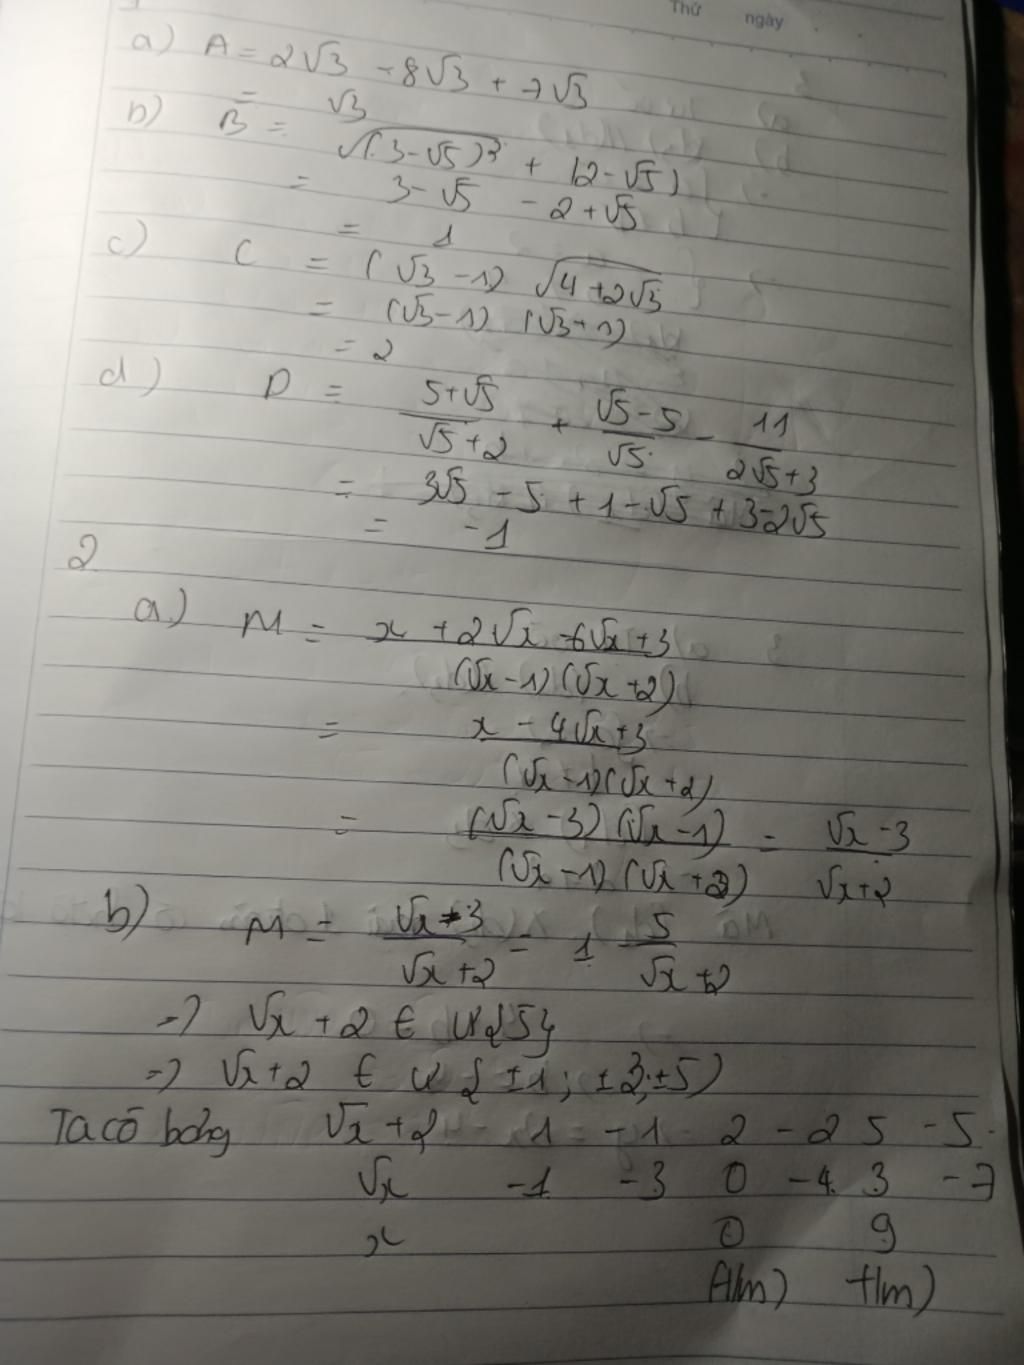 Thứ ngày
a) A = 2√3 - 8√3 + 7√3
= √3
b) B = √(3-√5)² + |2-√5|
= 3-√5 - 2+√5
= 1
c) C = (√3 -1) √4+2√3
= (√3-1) (√3+1)
= 2
d) D = (5+√5)/(√5+2) + (√5-5)/√5 - 11/(2√5+3)
= 3√5 - 5 + 1-√5 + 3-2√5
= -1
2
a) M = (x +2√x -6√x +3)/((√x -1)(√x +2))
= (x - 4√x +3)/((√x -1)(√x +2))
= ((√x -3)(√x -1))/((√x -1)(√x +2)) = (√x -3)/(√x+2)
b) M = (√x -3)/(√x +2) = 1 - 5/(√x +2)
=> √x + 2 ∈ Ư{5}
=> √x+2 ∈ Ư {±1; ±2; ±5)
Ta có bảng √x +2 1 -1 2 -2 5 -5
√x -1 -3 0 -4 3 -7
x 0 9
t/m) t/m)